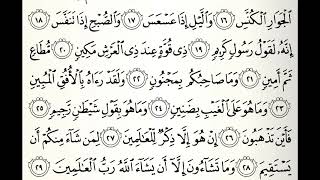 ٱلْجَوَارِ ٱلْكُنَّسِ ١٦ وَٱلَّيْلِ إِذَا عَسْعَسَ ١٧ وَٱلصُّبْحِ إِذَا تَنَفَّسَ ١٨
إِنَّهُۥ لَقَوْلُ رَسُولٍ كَرِيمٍ ١٩ ذِى قُوَّةٍ عِندَ ذِى ٱلْعَرْشِ مَكِينٍ ٢٠ مُّطَاعٍ
ثَمَّ أَمِينٍ ٢١ وَمَا صَاحِبُكُم بِمَجْنُونٍ ٢٢ وَلَقَدْ رَءَاهُ بِٱلْأُفُقِ ٱلْمُبِينِ
٢٣ وَمَا هُوَ عَلَى ٱلْغَيْبِ بِضَنِينٍ ٢٤ وَمَا هُوَ بِقَوْلِ شَيْطَٰنٍ رَّجِيمٍ ٢٥
فَأَيْنَ تَذْهَبُونَ ٢٦ إِنْ هُوَ إِلَّا ذِكْرٌ لِّلْعَٰلَمِينَ ٢٧ لِمَن شَآءَ مِنكُمْ أَن
يَسْتَقِيمَ ٢٨ وَمَا تَشَآءُونَ إِلَّآ أَن يَشَآءَ ٱللَّهُ رَبُّ ٱلْعَٰلَمِينَ ٢٩